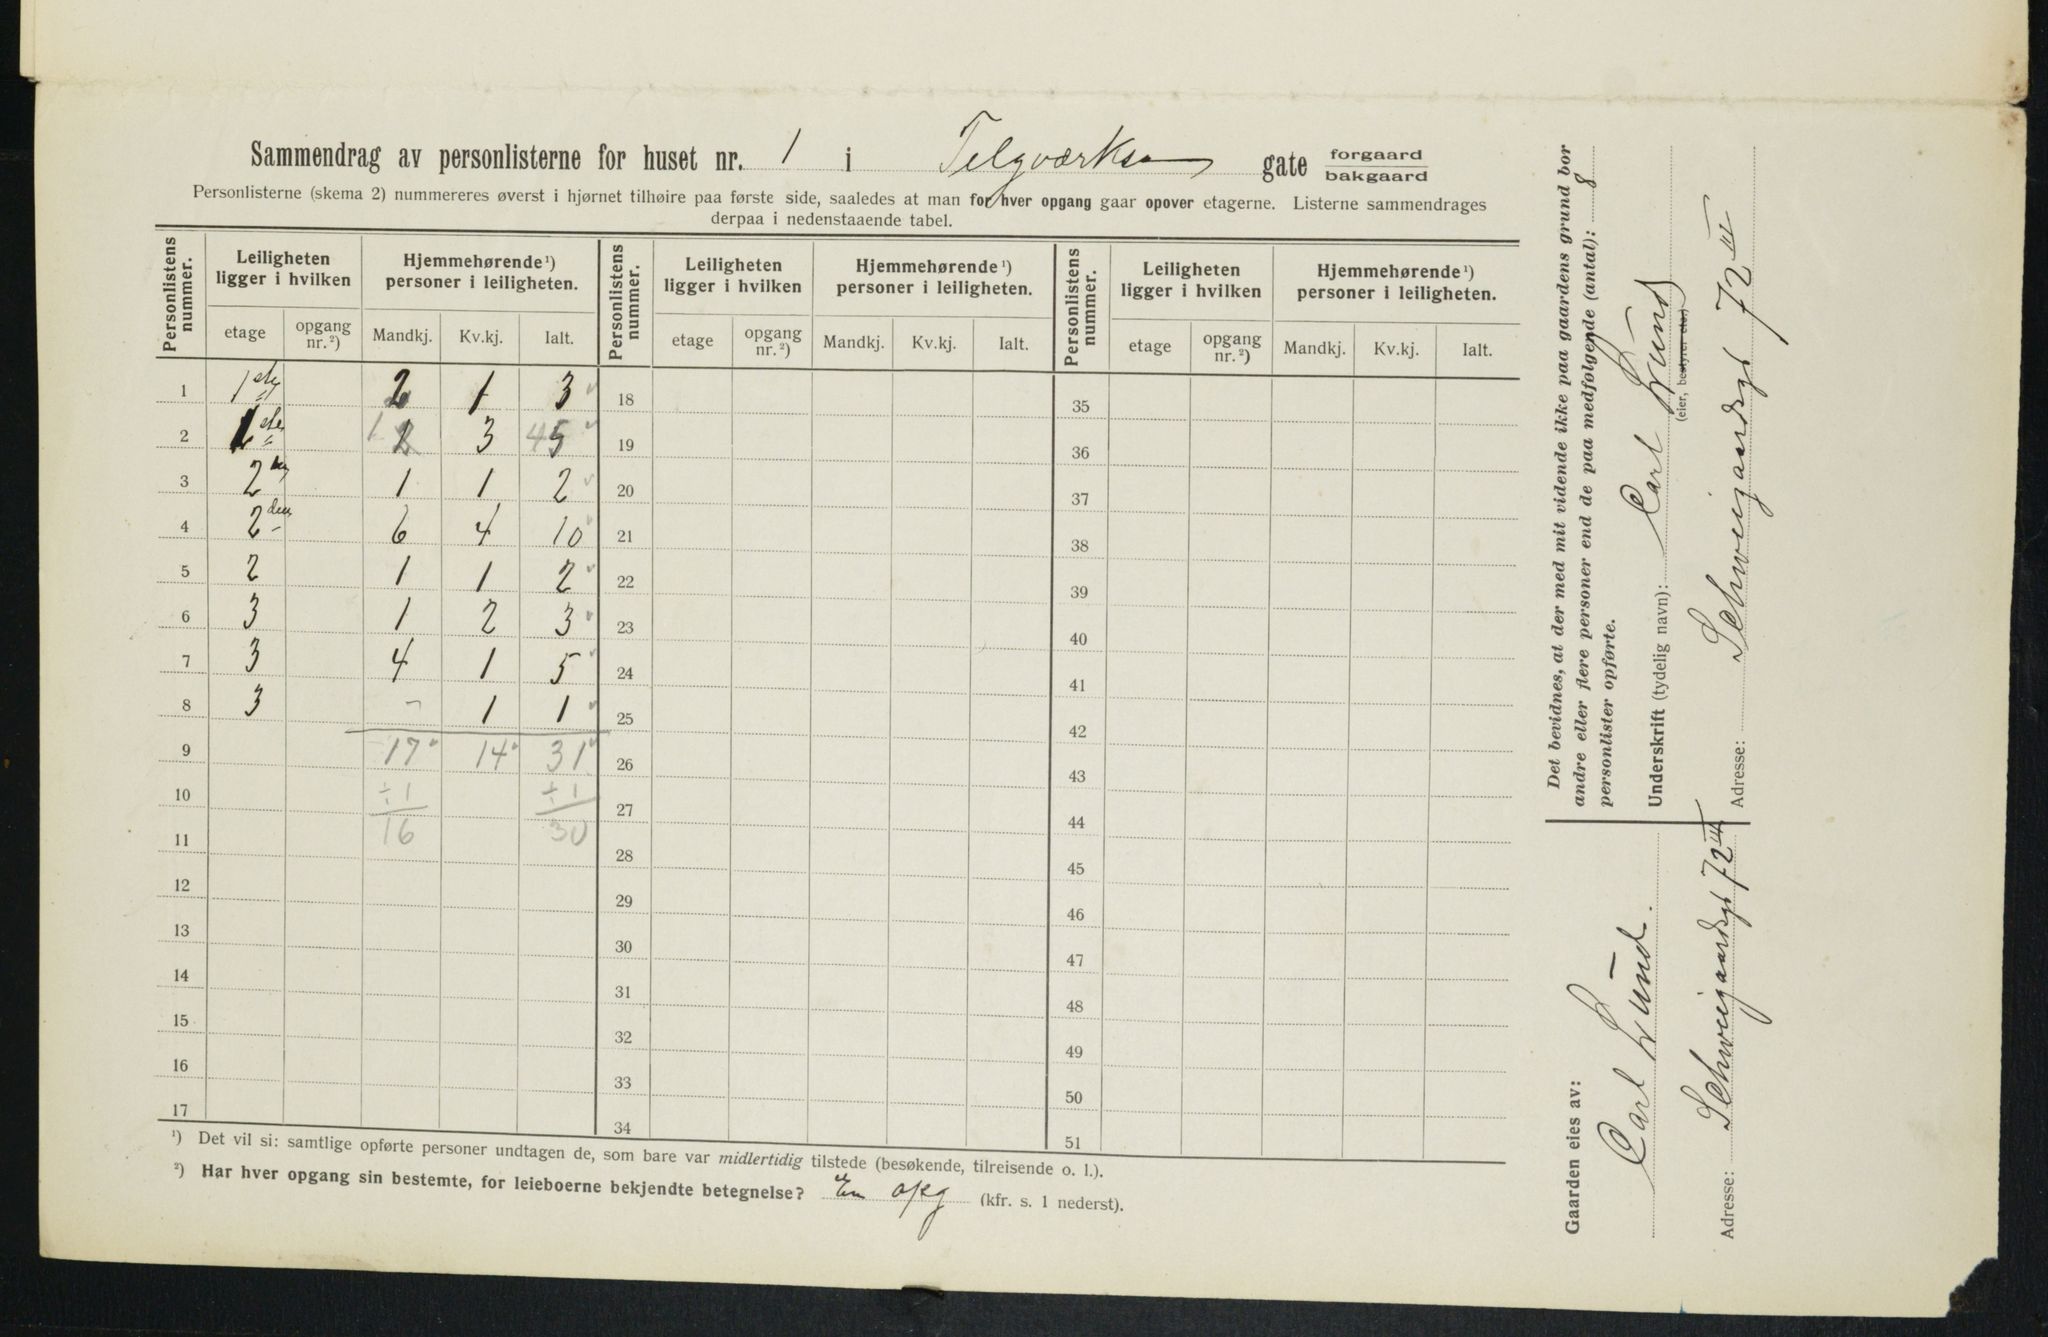 Sammendrag av personlisterne for huset nr. 1 i Telgværks gate forgaard bakgaard
Personlisterne (skema 2) nummereres øverst i hjørnet tilhøire paa første side, saaledes at man for hver opgang gaar opover etagerne. Listerne sammendrages
derpaa i nedenstaaende tabel.
Personlistens nummer. Leiligheten ligger i hvilken Hjemmehørende ¹) personer i leiligheten. Personlistens nummer. Leiligheten ligger i hvilken Hjemmehørende ¹) personer i leiligheten. Personlistens nummer. Leiligheten ligger i hvilken Hjemmehørende ¹) personer i leiligheten.
etage opgang nr. ²) Mandkj. Kv.kj. Ialt. etage opgang nr. ²) Mandkj. Kv.kj. Ialt. etage opgang nr. ²) Mandkj. Kv.kj. Ialt.
1 1ste 2 1 3 18 35
2 1ste 1 2 3 4 5 19 36
3 2 1 1 2 20 37
4 2den 6 4 10 21 38
5 2 1 1 2 22 39
6 3 1 2 3 23 40
7 3 4 1 5 24 41
8 3 - 1 1 25 42
9 17 14 31 26 43
10 ÷1 ÷1 27 44
11 16 30 28 45
12 29 46
13 30 47
14 31 48
15 32 49
16 33 50
17 34 51
¹) Det vil si: samtlige opførte personer undtagen de, som bare var midlertidig tilstede (besøkende, tilreisende o. l.).
²) Har hver opgang sin bestemte, for leieboerne bekjendte betegnelse? En opg (kfr. s. 1 nederst).
Det bevidnes, at der med mit vidende ikke paa gaardens grund bor
andre eller flere personer end de paa medfølgende (antal): 8
personlister opførte.
Underskrift (tydelig navn): Carl Lund
(eier, bestyrer etc.)
Adresse: Schweigaardsgt 72 III
Gaarden eies av:
Carl Lund.
Adresse: Schweigaardsgt 72 III